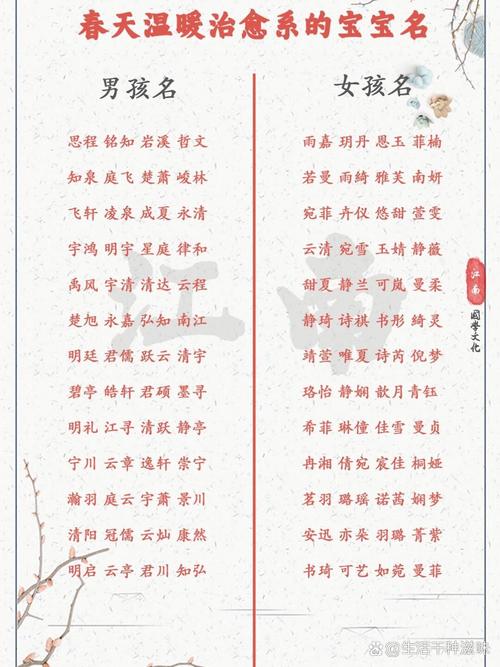 春天温暖治愈系的宝宝名
男孩名
思程 铭知 岩溪 哲文
知泉 庭飞 楚萧 峻林
飞轩 凌泉 成夏 永清
宇鸿 明宇 星庭 律和
禹风 宇清 清达 云程
楚旭 永嘉 弘知 南江
明廷 君儒 跃云 清宇
碧亭 皓轩 君硕 墨寻
明礼 江寻 清跃 静亭
宁川 云章 逸轩 崇宁
瀚羽 庭云 宇萧 景川
清阳 冠儒 云灿 康然
明启 云亭 君川 知弘
女孩名
雨嘉 玥丹 恩玉 菲楠
若曼 雨绮 雅芙 南妍
宛菲 卉仪 悠甜 萱雯
云清 宛雪 玉婧 静薇
甜夏 静兰 可岚 曼柔
静琦 诗祺 书彤 绮灵
靖萱 唯夏 诗芮 倪梦
珞怡 静娴 歆月 青钰
希菲 琳僮 佳雪 曼贞
冉湘 倩宛 宸佳 桐娅
茗羽 璐瑶 诺茜 娴梦
安迅 亦朵 羽璐 菁紫
书琦 可艺 如菀 曼菲
江南
江南
国学文化
@生活千种滋味